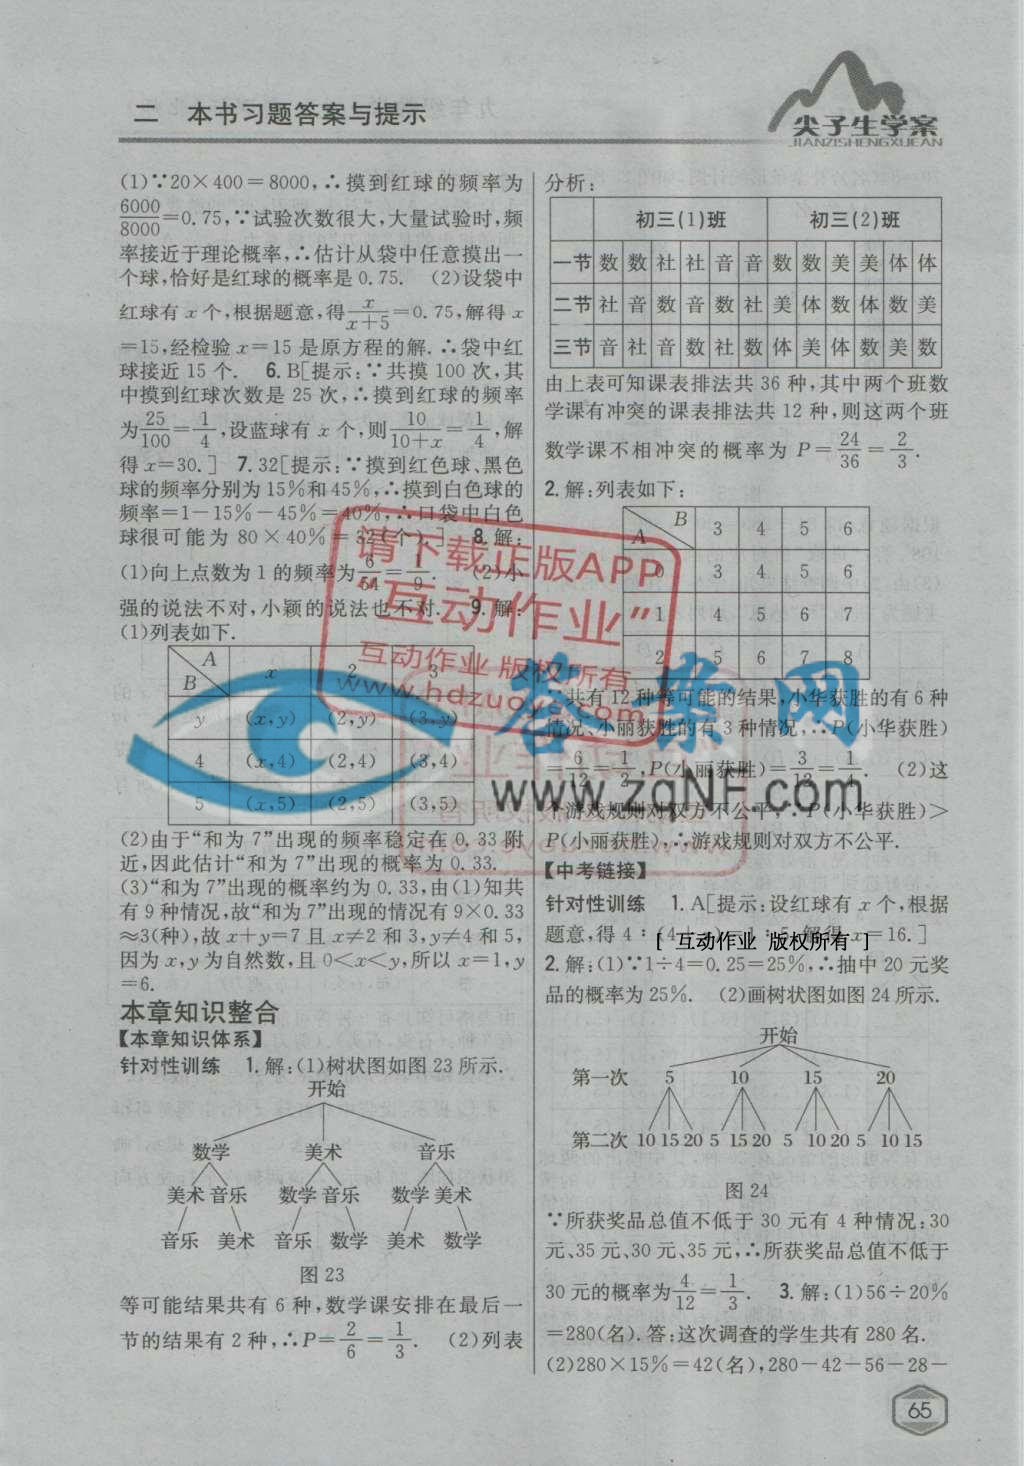 二 本书习题答案与提示
尖子生学案
JIANZISHENGXUEAN
(1)∵20×400=8000,∴摸到红球的频率为
6000/8000=0.75,∵试验次数很大,大量试验时,频
率接近于理论概率,∴估计从袋中任意摸出一
个球,恰好是红球的概率是 0.75. (2)设袋中
红球有 x 个,根据题意,得x/(x+5)=0.75,解得 x
=15,经检验 x=15 是原方程的解.∴袋中红
球接近 15 个. 6.B[提示:∵共摸 100 次,其
中摸到红球次数是 25 次,∴摸到红球的频率
为25/100=1/4,设蓝球有 x 个,则10/(10+x)=1/4,解
得 x=30.] 7.32[提示:∵摸到红色球、黑色
球的频率分别为15%和45%,∴摸到白色球的
频率=1-15%-45%=40%,∴口袋中白色
球很可能为 80×40%=32(个).] 8.解:
(1)向上点数为 1 的频率为6/54=1/9. (2)小
强的说法不对,小颖的说法也不对. 9.解:
(1)列表如下.
A B x 2 3
y (x,y) (2,y) (3,y)
4 (x,4) (2,4) (3,4)
5 (x,5) (2,5) (3,5)
(2)由于“和为 7”出现的频率稳定在 0.33 附
近,因此估计“和为 7”出现的概率为 0.33.
(3)“和为 7”出现的概率约为 0.33,由(1)知共
有 9 种情况,故“和为 7”出现的情况有 9×0.33
≈3(种),故 x+y=7 且 x≠2 和 3,y≠4 和 5,
因为 x,y 为自然数,且 0<x<y,所以 x=1,y
=6.
本章知识整合
【本章知识体系】
针对性训练 1.解:(1)树状图如图 23 所示.
开始
数学 美术 音乐
美术 音乐 数学 音乐 数学 美术
音乐 美术 音乐 数学 美术 数学
图 23
等可能结果共有 6 种,数学课安排在最后一
节的结果有 2 种,∴P=2/6=1/3. (2)列表
分析:
初三(1)班 初三(2)班
一节 数 数 社 社 音 音 数 数 美 美 体 体
二节 社 音 数 音 数 社 美 体 数 体 数 美
三节 音 社 音 数 社 数 体 美 体 数 美 数
由上表可知课表排法共 36 种,其中两个班数
学课有冲突的课表排法共 12 种,则这两个班
数学课不相冲突的概率为 P=24/36=2/3.
2.解:列表如下:
B A 3 4 5 6
0 3 4 5 6
1 4 5 6 7
2 5 6 7 8
∵共有 12 种等可能的结果,小华获胜的有 6 种
情况、小丽获胜的有 3 种情况,∴P(小华获胜)
=6/12=1/2,P(小丽获胜)=3/12=1/4. (2)这
个游戏规则对双方不公平,∵P(小华获胜)>
P(小丽获胜),∴游戏规则对双方不公平.
【中考链接】
针对性训练 1.A[提示:设红球有 x 个,根据
题意,得 4∶(4+x)=1∶5,解得 x=16.]
2.解:(1)∵1÷4=0.25=25%,∴抽中 20 元奖
品的概率为 25%. (2)画树状图如图 24 所示.
开始
第一次 5 10 15 20
第二次 10 15 20 5 15 20 5 10 20 5 10 15
图 24
∵所获奖品总值不低于 30 元有 4 种情况:30
元、35 元、30 元、35 元,∴所获奖品总值不低于
30 元的概率为4/12=1/3. 3.解:(1)56÷20%
=280(名).答:这次调查的学生共有 280 名.
(2)280×15%=42(名),280-42-56-28-
65
请下载正版APP
“互动作业”
互动作业 版权所有
www.hdzuoye.com
答案网
www.zqNF.com
[ 互动作业 版权所有 ]